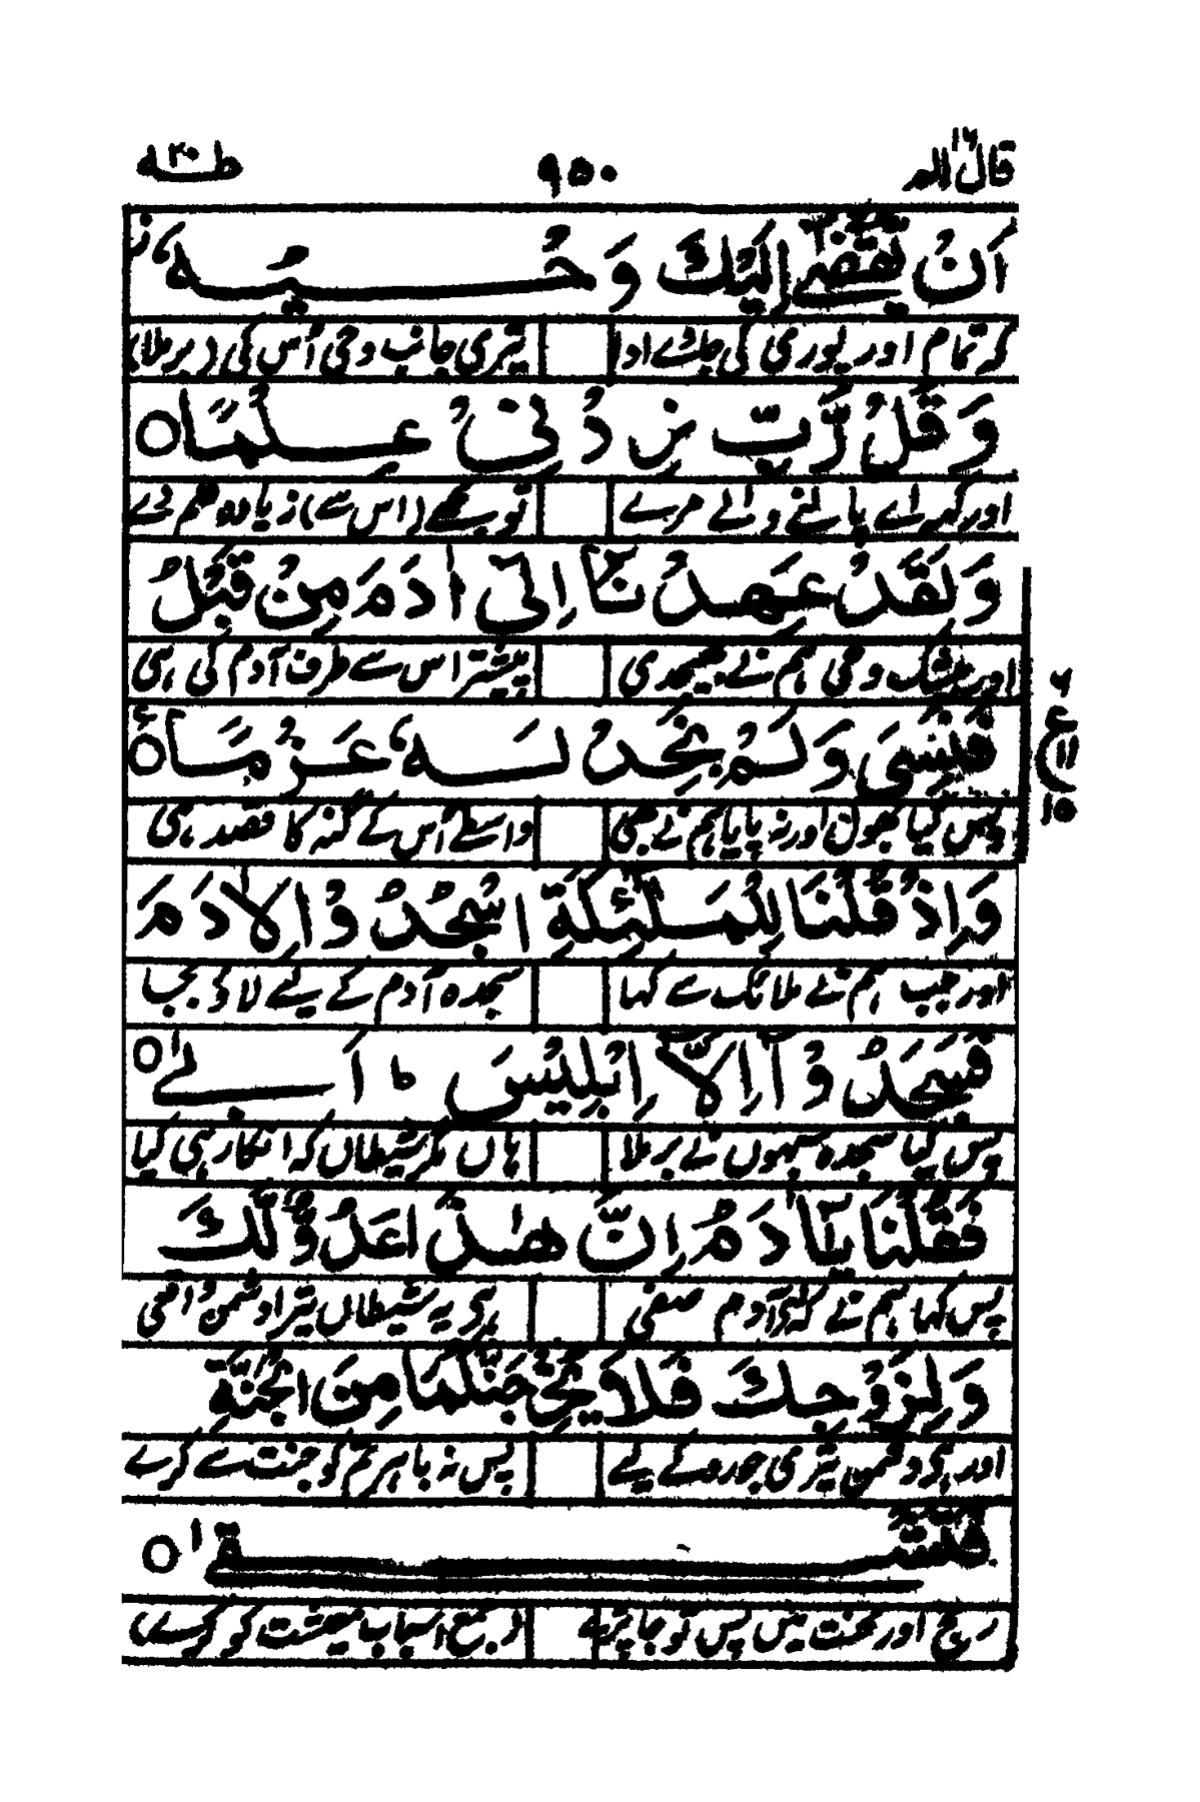 قال الم ۱۶ ۹۵۰ طٰهٰ ۲۰
اَنْ يُّقْضٰٓى اِلَيْكَ وَحْيُهٗ ز
کہ تمام اور پوری کی جائے ادا تیری جانب وحی اُس کی (برملا)
وَقُلْ رَّبِّ زِدْنِىْ عِلْمًا ○
اور کہہ اے پالنے والے مرے تو مجھے (اس سے) زیادہ علم دے
وَلَقَدْ عَهِدْنَآ اِلٰٓى اٰدَمَ مِنْ قَبْلُ
اور بیشک وحی ہم نے بھیجدی پیشتر اس سے طرف آدم کی ہی
فَنَسِىَ وَلَمْ نَجِدْ لَهٗ عَزْمًا ○ ع
پس گیا بھول اور نہ پایا ہم نے بھی واسطے اُس کے گنہ کا قصد ہی
۶
ع
۱۱
۱۵
وَاِذْ قُلْنَا لِلْمَلٰٓئِكَةِ اسْجُدُوْا لِاٰدَمَ
اور جب ہم نے ملائک سے کہا سجدہ آدم کے لیے لاؤ بجا
فَسَجَدُوْٓا اِلَّآ اِبْلِيْسَ ط اَبٰى ○
پس کیا سجدہ سبہوں نے برملا ہاں مگر شیطاں کہ انکار ہی کیا
فَقُلْنَا يٰٓاٰدَمُ اِنَّ هٰذَا عَدُوٌّ لَّكَ
پس کہا ہم نے کہ آدم صفی ہے یہ شیطاں تیرا دشمن
وَلِزَوْجِكَ فَلَا يُخْرِجَنَّكُمَا مِنَ الْجَنَّةِ
اور ہے دشمن تیری جورو کے لیے پس نہ باہر تم کو جنت سے کرے
فَتَشْقٰى ○
رنج اور محنت میں پس تو جا پڑے (جمع اسباب معیشت کو کرے)